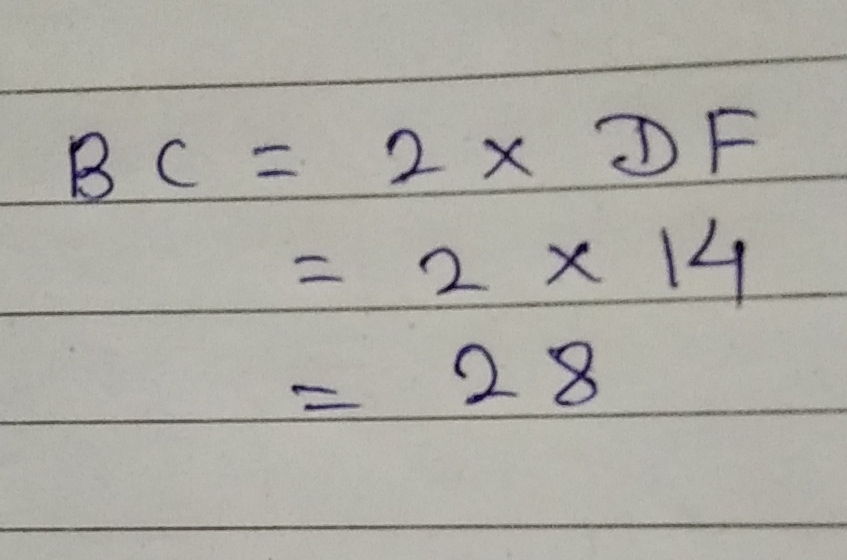 BC = 2 × DF
= 2 × 14
= 28